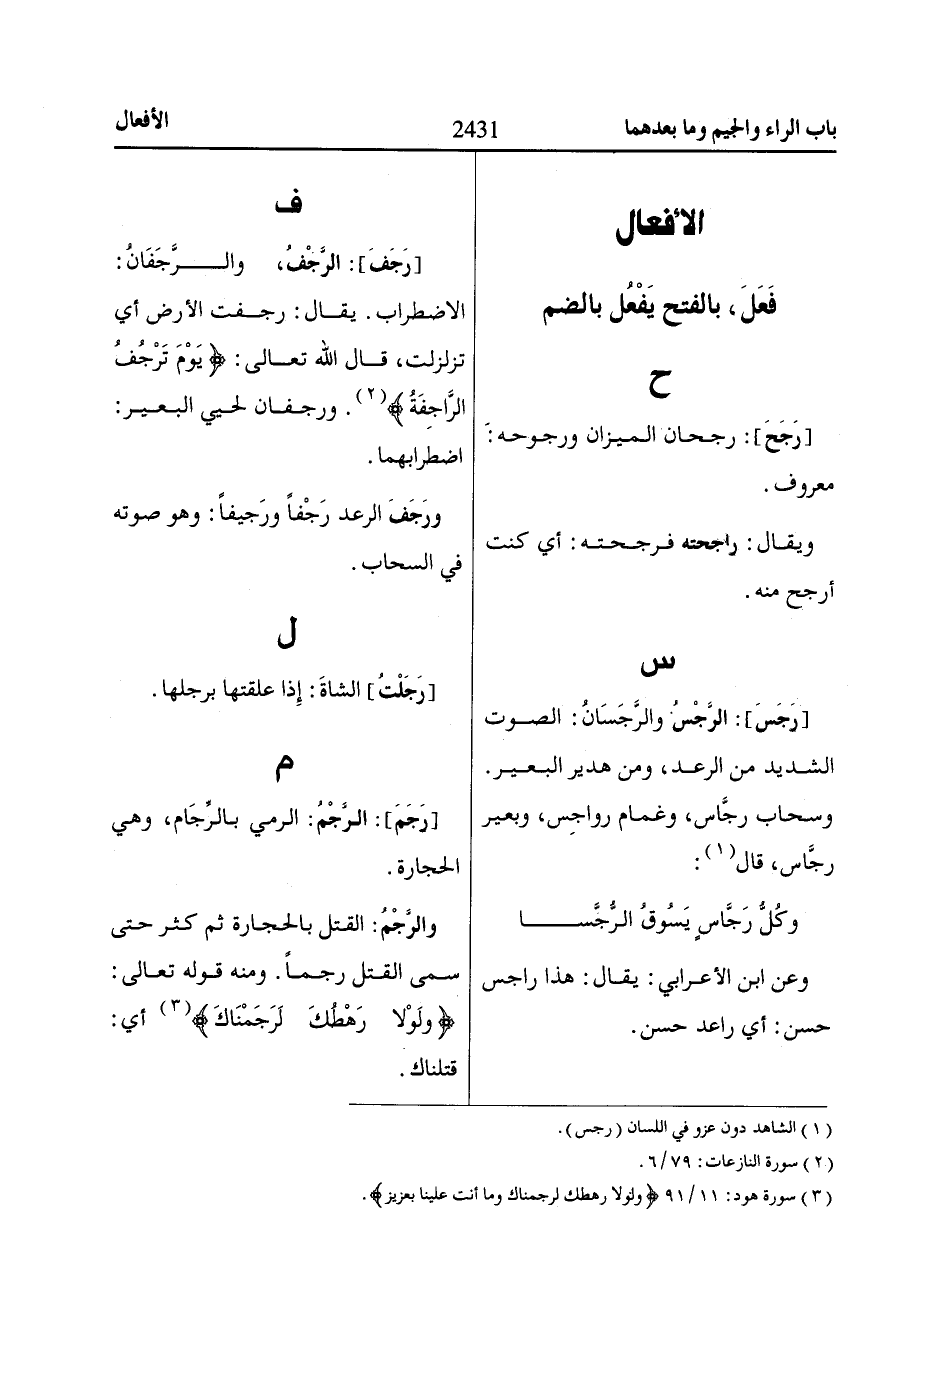 باب الراء والجيم وما بعدهما
2431
الأفعال
الأفعال
فَعَلَ، بالفتح يَفْعُل بالضم
ح
[رَجَحَ]: رجحان الميزان ورجوحه:
معروف.
ويقال: راجحته فرجحته: أي كنت
أرجح منه.
س
[رَجَسَ]: الرَّجْسُ والرَّجَسَانُ: الصوت
الشديد من الرعد، ومن هدير البعير.
وسحاب رجَّاس، وغمام رواجِس، وبعير
رجَّاس، قال(١):
وكُلُّ رَجَّاسٍ يَسُوقُ الرُّجَّســـــا
وعن ابن الأعرابي: يقال: هذا راجس
حسن: أي راعد حسن.
ف
[رَجَفَ]: الرَّجْفُ، والـــــرَّجَفَانُ:
الاضطراب. يقال: رجفت الأرض أي
تزلزلت، قال الله تعالى: ﴿يَوْمَ تَرْجُفُ
الرَّاجِفَةُ﴾(٢). ورجفان لحيي البعير:
اضطرابهما.
ورَجَفَ الرعد رَجْفاً ورَجيفاً: وهو صوته
في السحاب.
ل
[رَجَلْتُ] الشاةَ: إِذا علقتها برجلها.
م
[رَجَمَ]: الرَّجْمُ: الرمي بالرِّجَام، وهي
الحجارة.
والرَّجْمُ: القتل بالحجارة ثم كثر حتى
سمى القتل رجماً. ومنه قوله تعالى:
﴿ولَوْلا رَهْطُكَ لَرَجَمْنَاكَ﴾(٣) أي:
قتلناك.
(١) الشاهد دون عزو في اللسان (رجس).
(٢) سورة النازعات: ٦/٧٩.
(٣) سورة هود: ٩١/١١ ﴿ولولا رهطك لرجمناك وما أنت علينا بعزيز﴾.